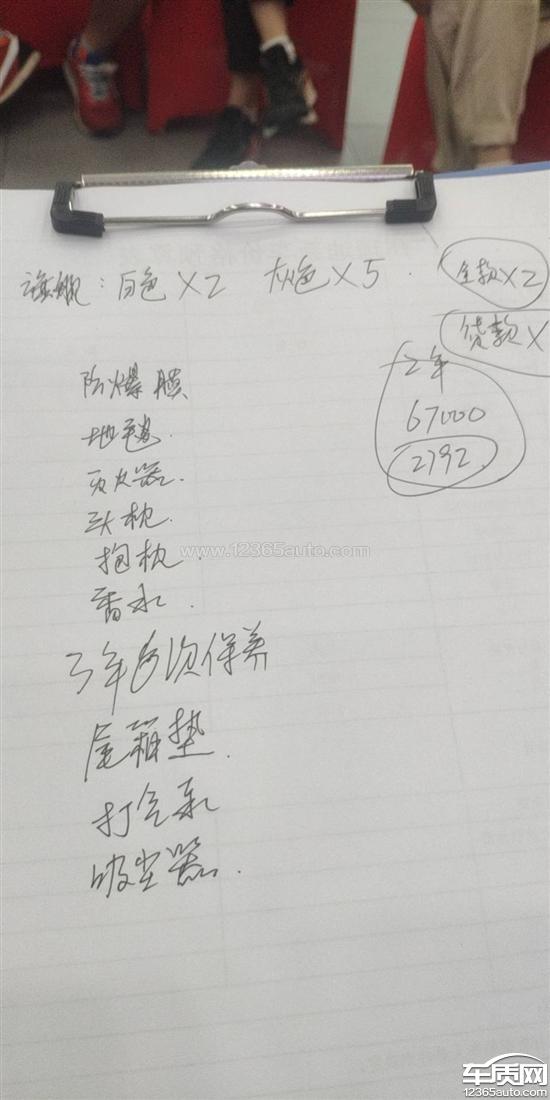 白色×2 灰色×5.
全款×2
贷款×
2年
67000
2792
防爆膜
地毯.
灭火器.
头枕.
抱枕.
香水.
3年6次保养
尾箱垫.
打气泵
吸尘器.
www.12365auto.com
车质网
12365auto.com